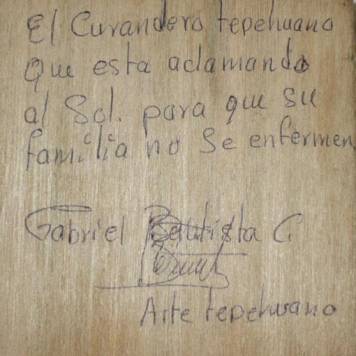 El Curandero tepehuano
Que esta aclamando
al Sol. para que su
familia no se enfermen
Gabriel Bautista C.
Arte tepehuano